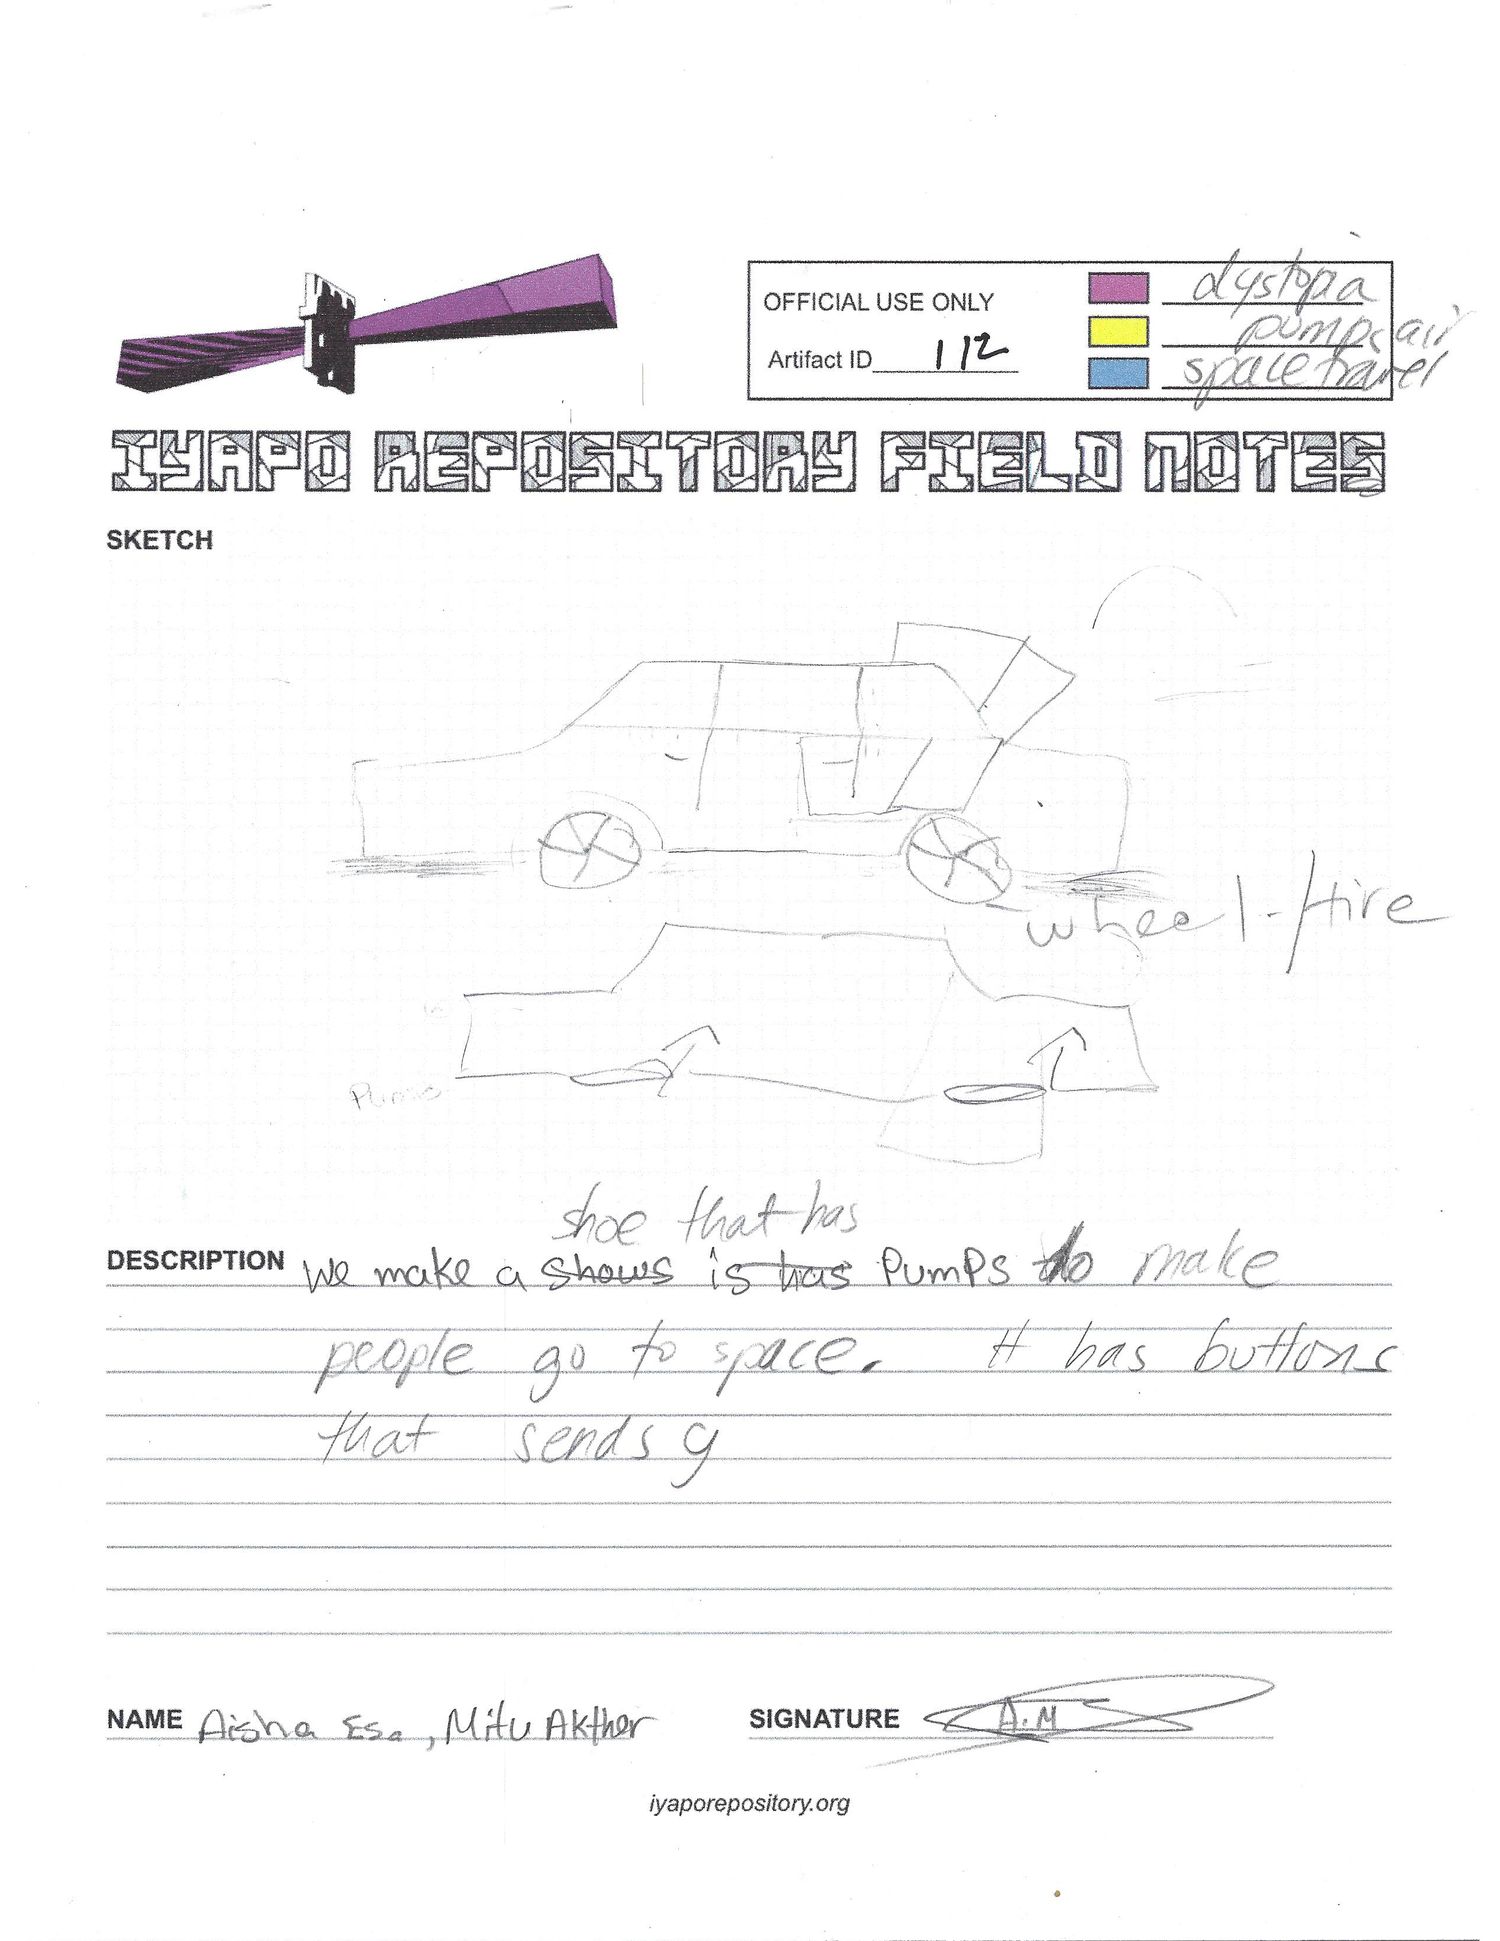 OFFICIAL USE ONLY
Artifact ID 112
dystopia
pumps air
space travel
IYAPO REPOSITORY FIELD NOTES
SKETCH
wheel-tire
Pumps
shoe that has
DESCRIPTION We make a shows is has Pumps to make
people go to space. It has buttons
that sends g
NAME Aisha Esa, Mitu Akther
SIGNATURE A.M
iyaporepository.org